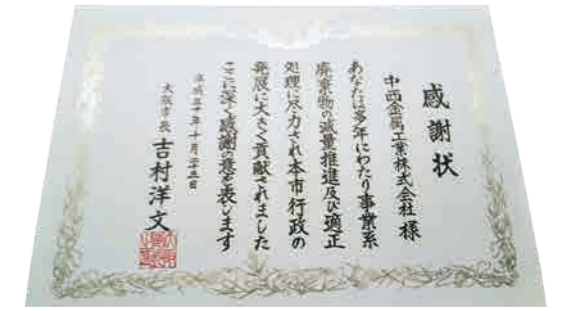 感謝状
中西金属工業株式会社 様
あなたは多年にわたり事業系
廃棄物の減量推進及び適正
処理に尽力され本市行政の
発展に大きく貢献されました
ここに深く感謝の意を表します
平成三十年十月二十五日
大阪市長 吉村洋文